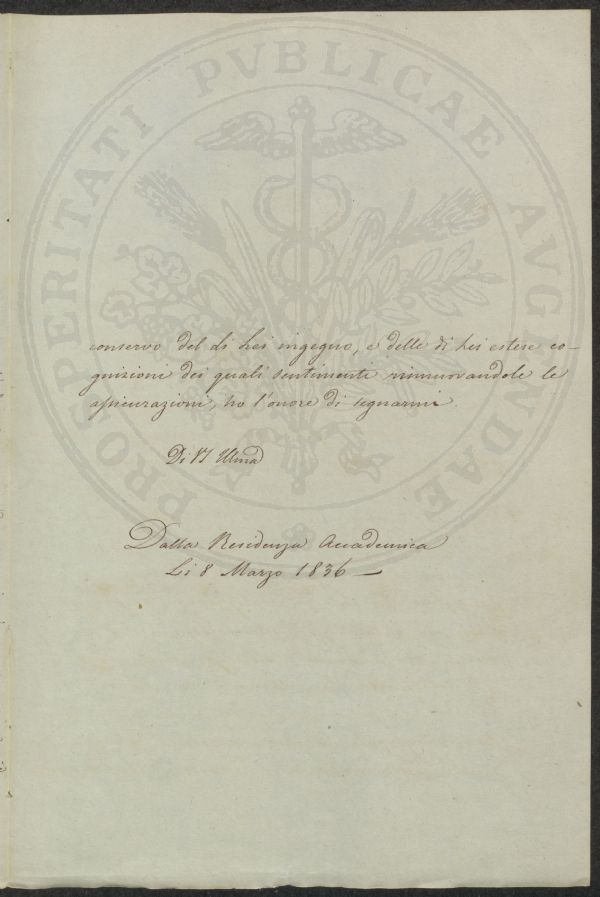 PROSPERITATI PVBLICAE AVGENDAE
conservo del di Lei ingegno, e delle di Lei estese co-
gnizione dei quali sentimenti rinnuovandole le
assicurazioni, ho l'onore di segnarmi.
Di VS Illma
Dalla Residenza Accademica
Li 8 Marzo 1836 —